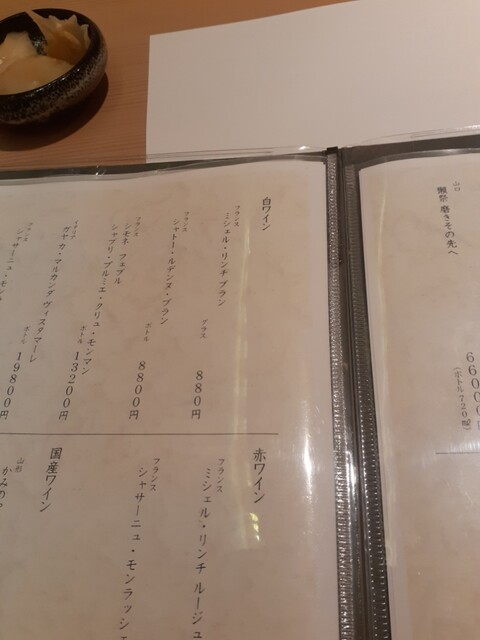 山口
獺祭 磨きその先へ
(ボトル720㎖)
白ワイン
フランス
ミシェル・リンチ ブラン
グラス
880円
フランス
シャトー・ルデンヌ・ブラン
ボトル
8800円
フランス
シモネ フェブル
シャブリ・プルミエ・クリュ・モンマン
ボトル
13200円
イタリア
ガヤ カ・マルカンダ ヴィスタマーレ
ボトル
19800円
フランス
シャサーニュ・モン
赤ワイン
フランス
ミシェル・リンチ ルージュ
フランス
シャサーニュ・モンラッシェ
国産ワイン
山形